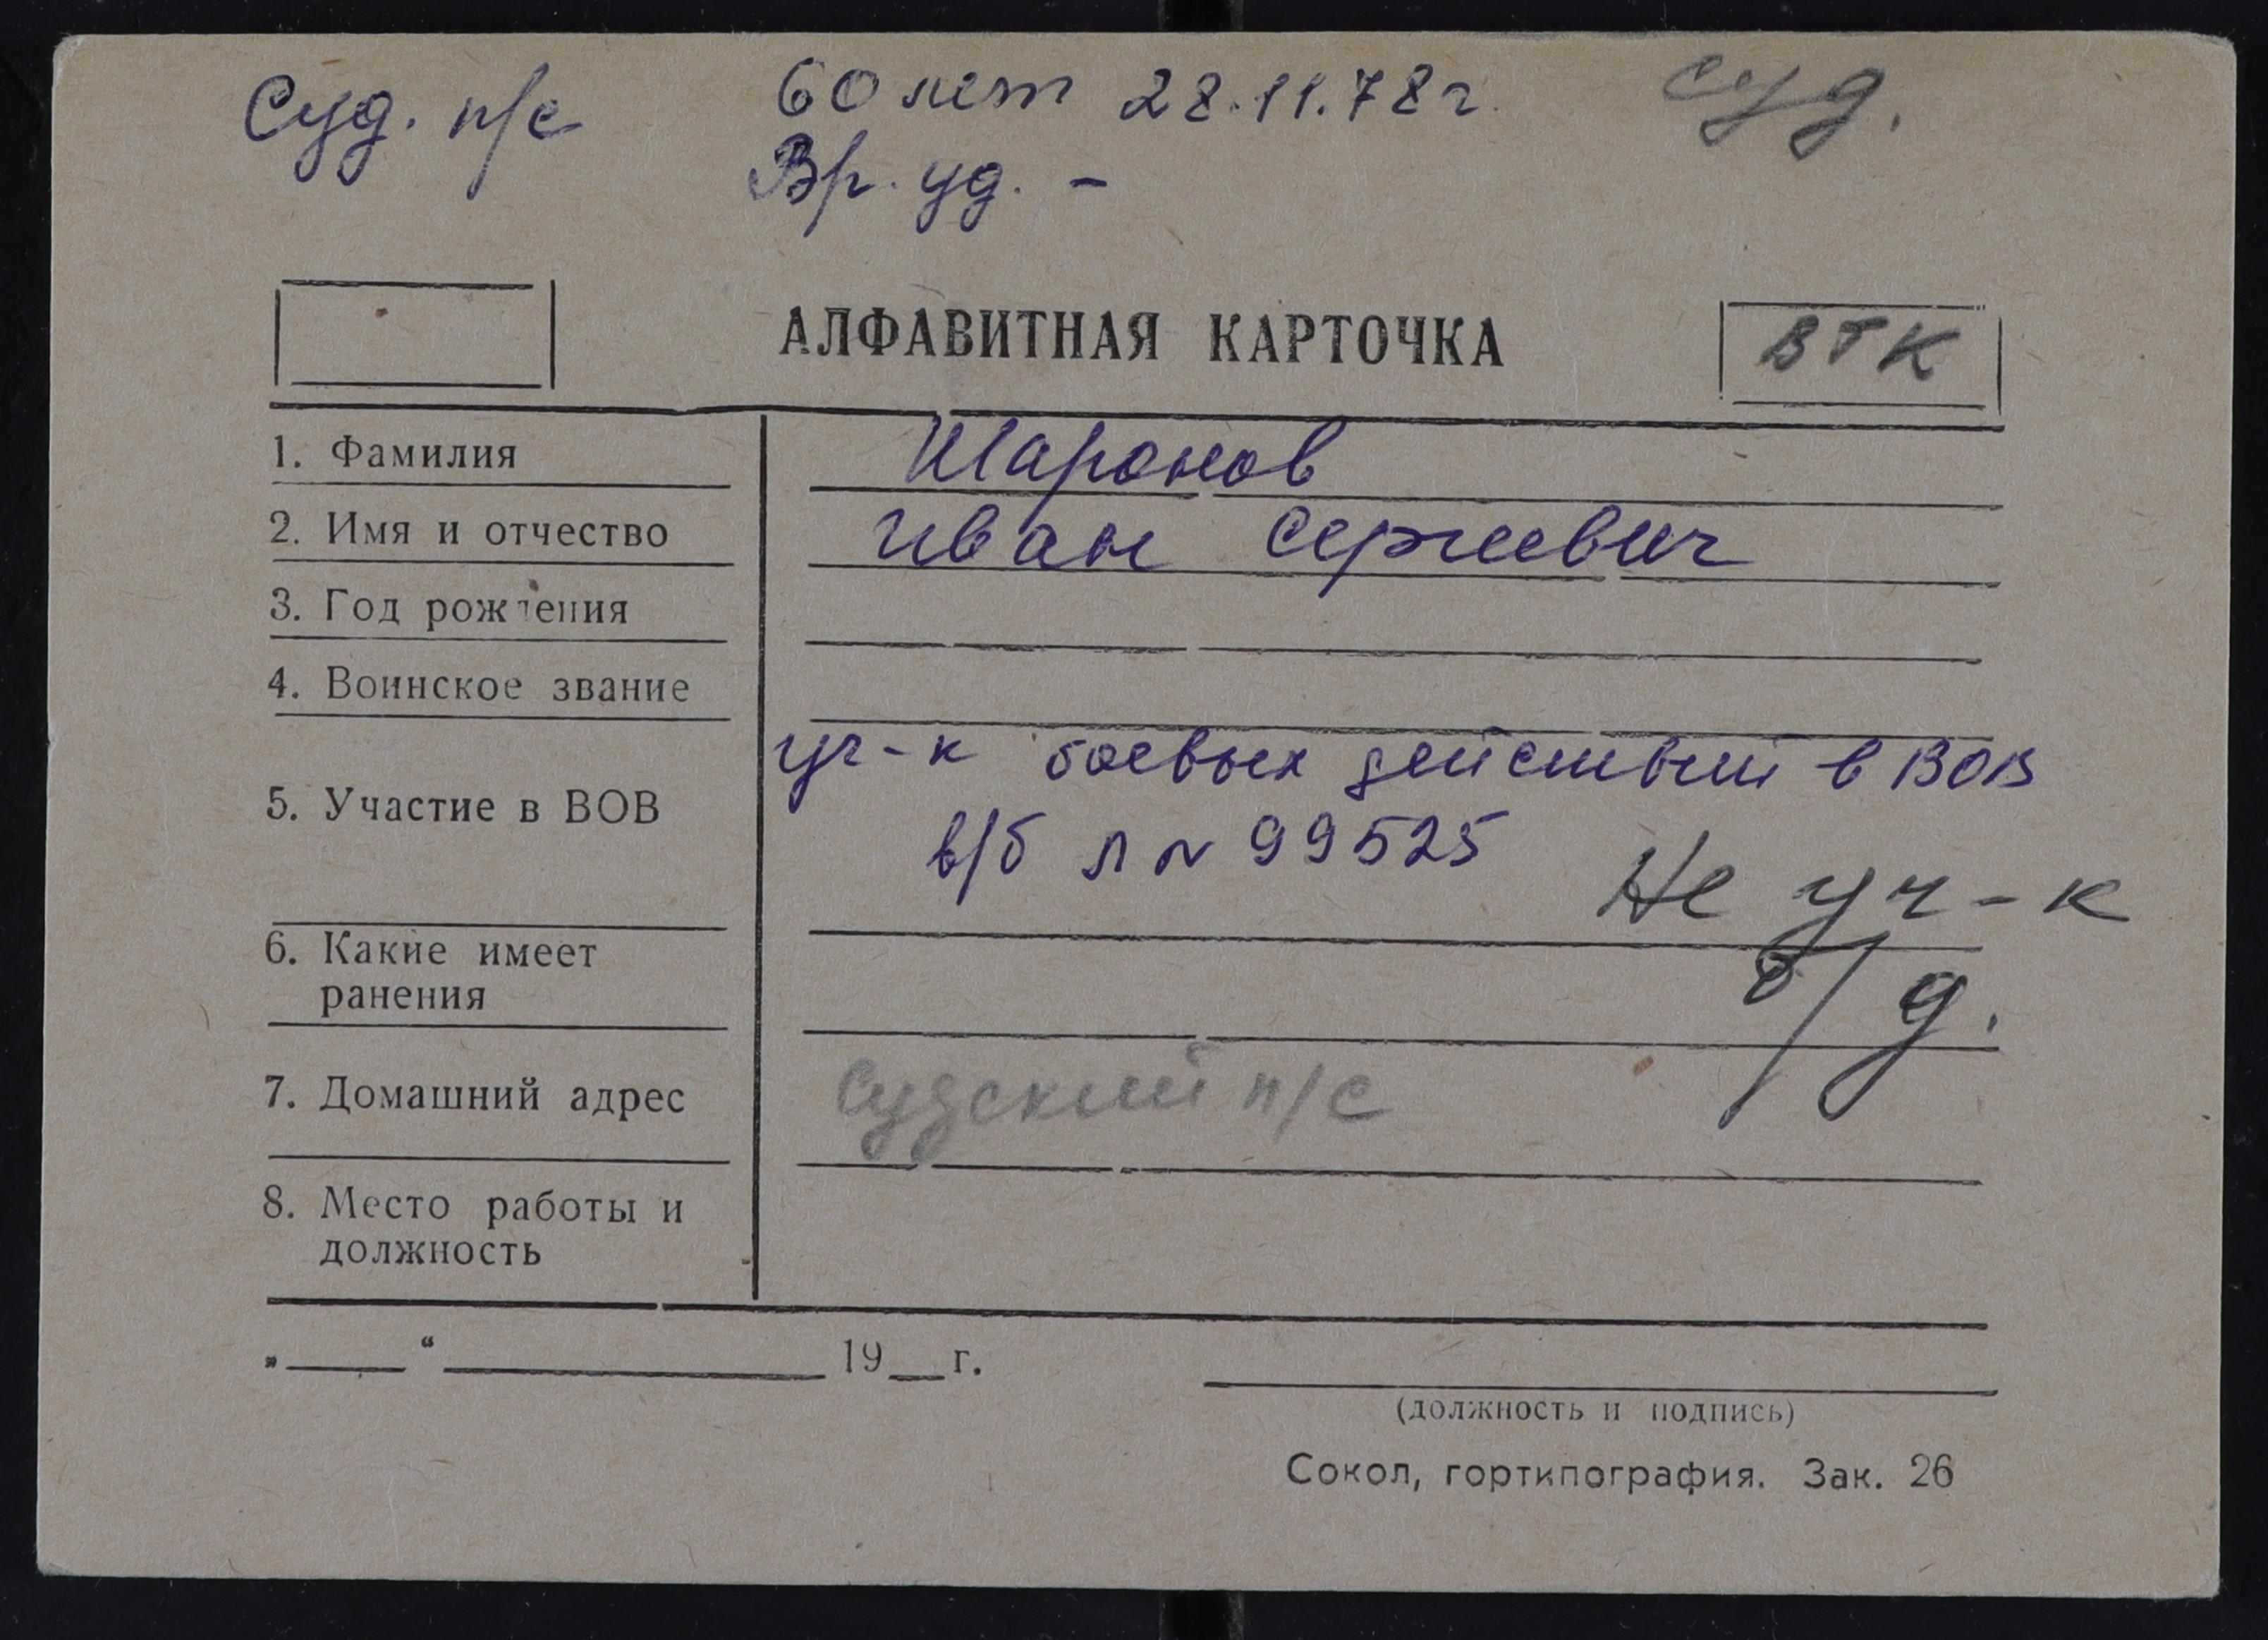 Суд. п/с 60 лет 28.11.78 г. суд.
Вр. уд. -
АЛФАВИТНАЯ КАРТОЧКА ВТК
1. Фамилия Шаронов
2. Имя и отчество Иван Сергеевич
3. Год рождения
4. Воинское звание
уч-к боевых действий в ВОВ
5. Участие в ВОВ
в/б Л № 99525
Не уч-к
б/д.
6. Какие имеет
ранения
7. Домашний адрес Судский п/с
8. Место работы и
должность
„ “ 19 г.
(должность и подпись)
Сокол, гортипография. Зак. 26